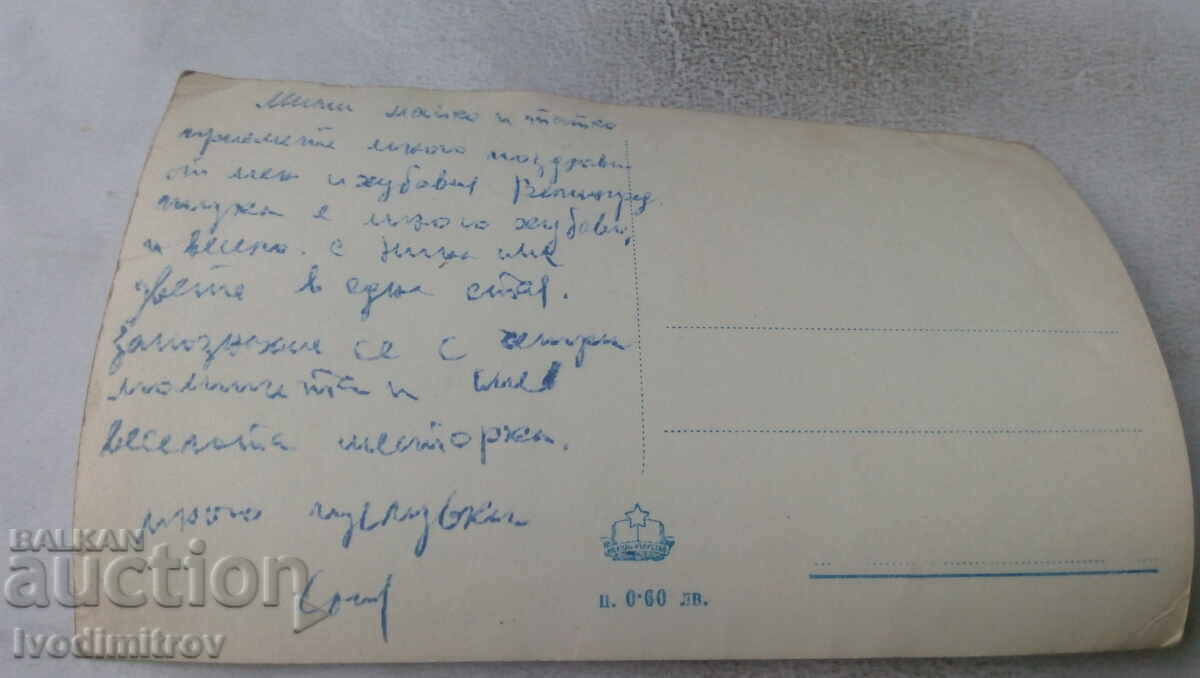 Мили майко и татко
приемете много поздрави
от мен и хубавия Велинград.
тука е много хубаво,
и весело. с Нина сме
двете в една стая.
Запознахме се с четири
момичета и сме
веселата шесторка.
много целувки
ц. 0·60 лв.
BALKAN
auction
Ivodimitrov